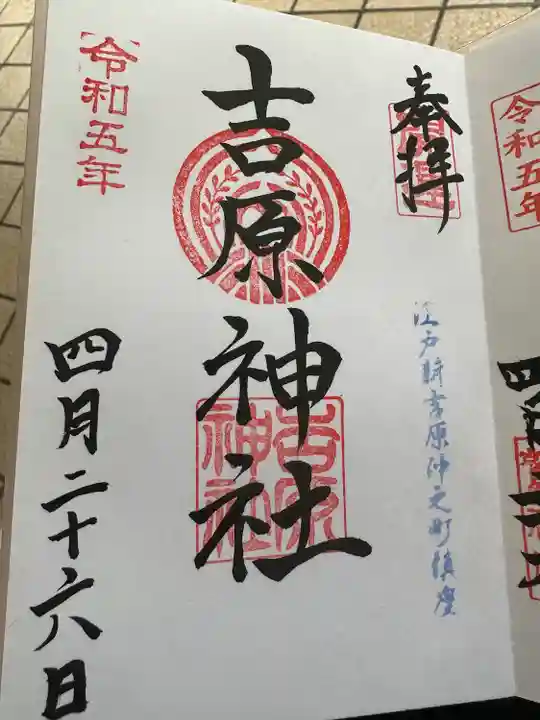 令和五年
奉拝
江戸新吉原仲之町鎮座
吉原神社
吉原神社
令和五年
四月二十六日